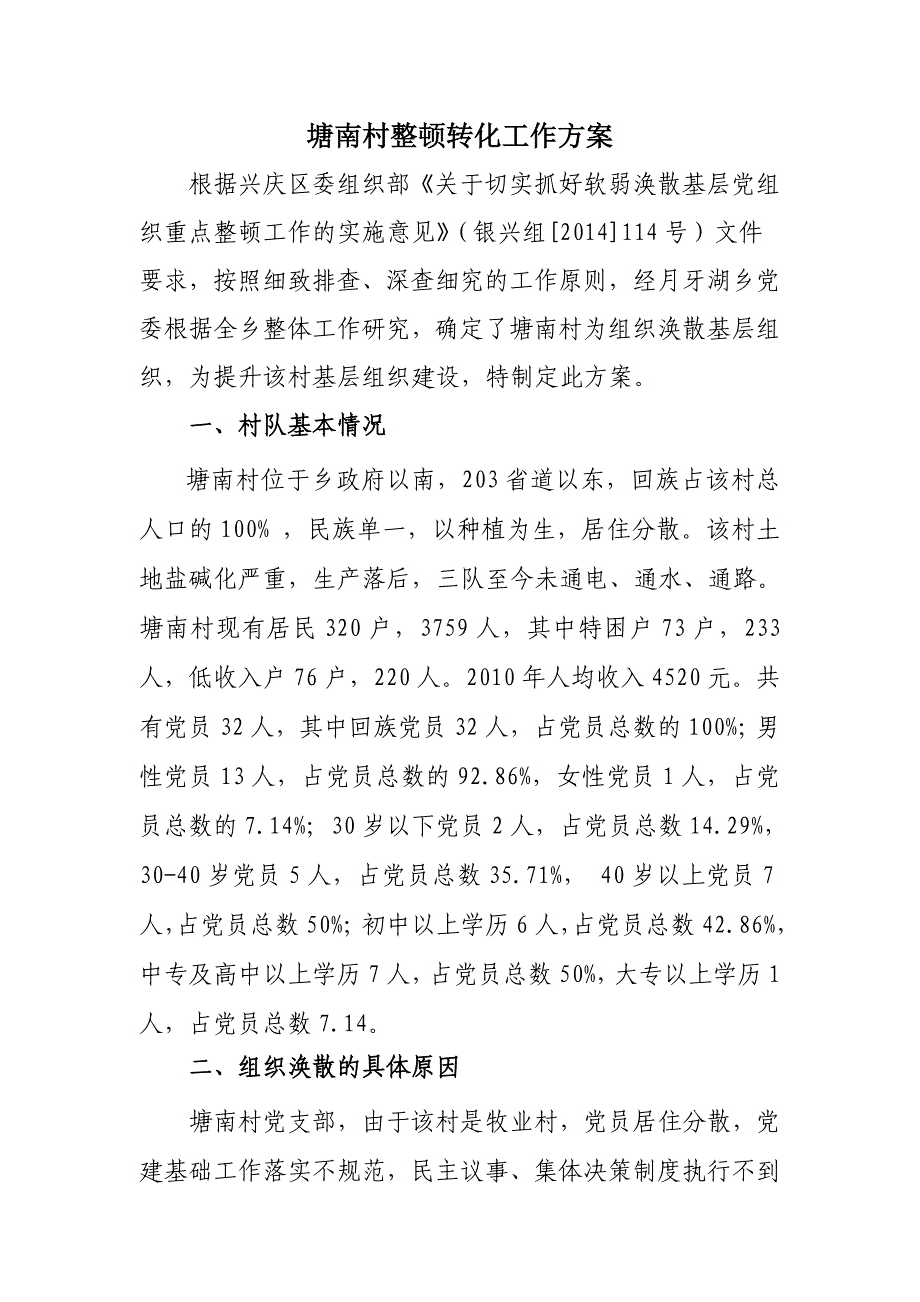 塘南村整顿转化工作方案
根据兴庆区委组织部《关于切实抓好软弱涣散基层党组
织重点整顿工作的实施意见》（银兴组[2014]114 号）文件
要求，按照细致排查、深查细究的工作原则，经月牙湖乡党
委根据全乡整体工作研究，确定了塘南村为组织涣散基层组
织，为提升该村基层组织建设，特制定此方案。
一、村队基本情况
塘南村位于乡政府以南，203 省道以东，回族占该村总
人口的 100% ，民族单一，以种植为生，居住分散。该村土
地盐碱化严重，生产落后，三队至今未通电、通水、通路。
塘南村现有居民 320 户，3759 人，其中特困户 73 户，233
人，低收入户 76 户，220 人。2010 年人均收入 4520 元。共
有党员 32 人，其中回族党员 32 人，占党员总数的 100%；男
性党员 13 人，占党员总数的 92.86%，女性党员 1 人，占党
员总数的 7.14%；30 岁以下党员 2 人，占党员总数 14.29%，
30-40 岁党员 5 人，占党员总数 35.71%， 40 岁以上党员 7
人，占党员总数 50%；初中以上学历 6 人，占党员总数 42.86%，
中专及高中以上学历 7 人，占党员总数 50%，大专以上学历 1
人，占党员总数 7.14。
二、组织涣散的具体原因
塘南村党支部，由于该村是牧业村，党员居住分散，党
建基础工作落实不规范，民主议事、集体决策制度执行不到